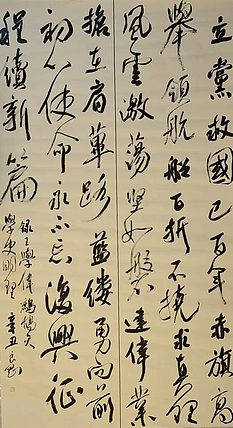 立黨救國已百年赤旗高
舉領航船百折不撓求真理
風雲激蕩堅如磐建偉業
擔在肩蓽路藍縷勇向前
初心使命永不忘復興征
程續新篇
錄王學偉鷓鴣天
學史明理 辛丑